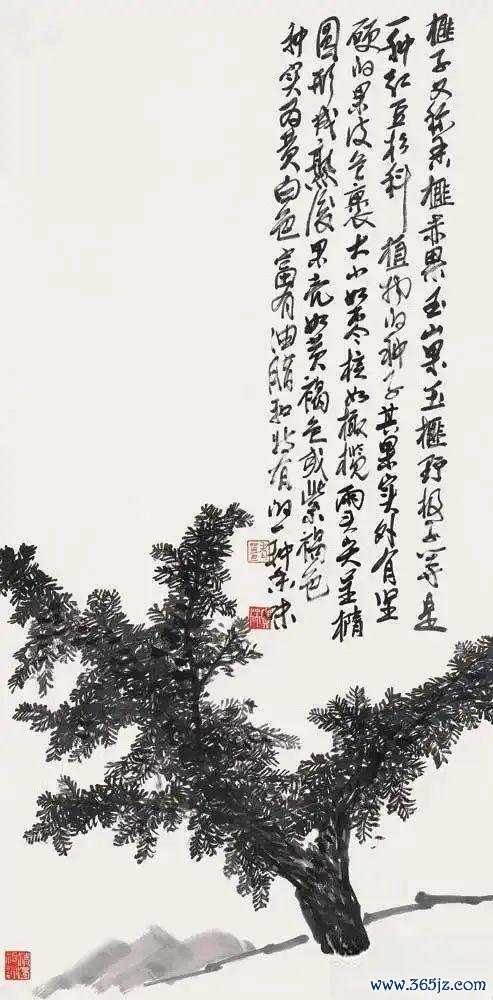 榧子又称香榧赤果玉山果玉榧野极子等是
一种红豆杉科植物的种子其果实外有坚
硬的果皮包裹大小如枣核如橄榄兩头尖呈椭
圆形成熟後果壳为黄褐色或紫褐色
种实为黄白色富有油脂和特有的一种香味
www.365jz.com